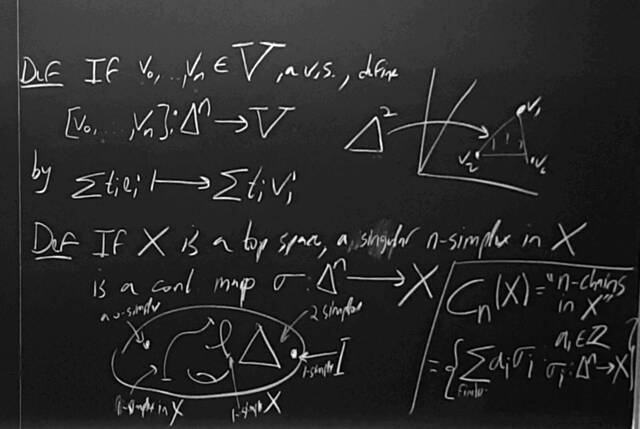 Def If v₀, .., vₙ ∈ V, a v.s., define
[v₀, ..., vₙ]: Δⁿ → V
by Σtᵢeᵢ ↦ Σtᵢvᵢ
Δ²
v₁
v₂
v₀
Def If X is a top space, a singular n-simplex in X
is a cont map σ: Δⁿ → X
a 0-simplex
2 simplex
1-simplex I
1-simplex in X
1-simplex X
Cₙ(X) = "n-chains
in X"
= { Σ aᵢσᵢ : aᵢ ∈ ℤ
finite
σᵢ: Δⁿ → X }